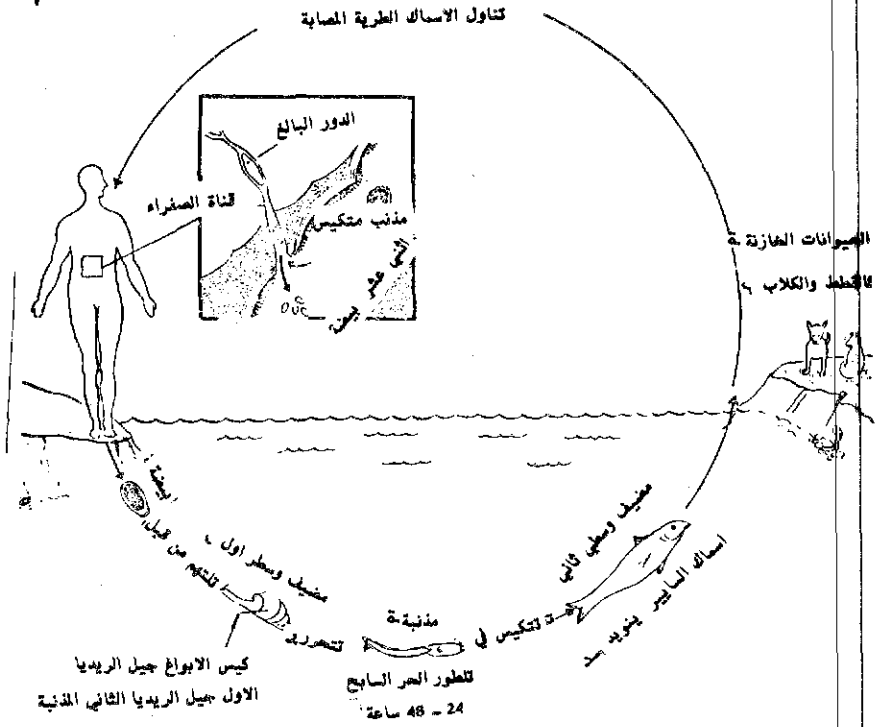 تناول الاسماك الطرية المصابة
الدور البالغ
قناة الصفراء
مذنب متكيس
اثني عشر
بيضة
الحيوانات الخازنة
كالقطط والكلاب
بيضة
تلتهم من قبل
مضيف وسطر اول
كيس الابواغ جيل الريديا
الاول جيل الريديا الثاني المذنبة
تتحرر
مذنبة
للطور الحر السابح
24 - 48 ساعة
تتكيس في
مضيف وسطي ثاني
اسماك السايبر ينويد